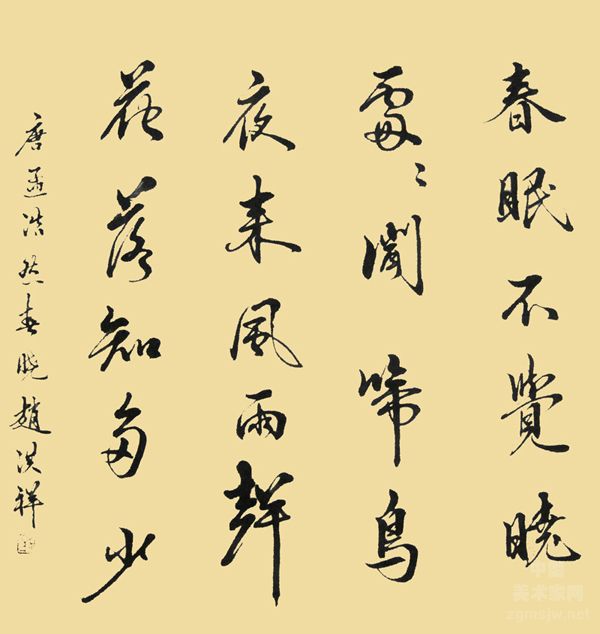 春眠不覺曉
處〻聞啼鳥
夜来風雨聲
花落知多少
唐孟浩然春曉趙洪祥
中国
美术家网
zgmsjw.net